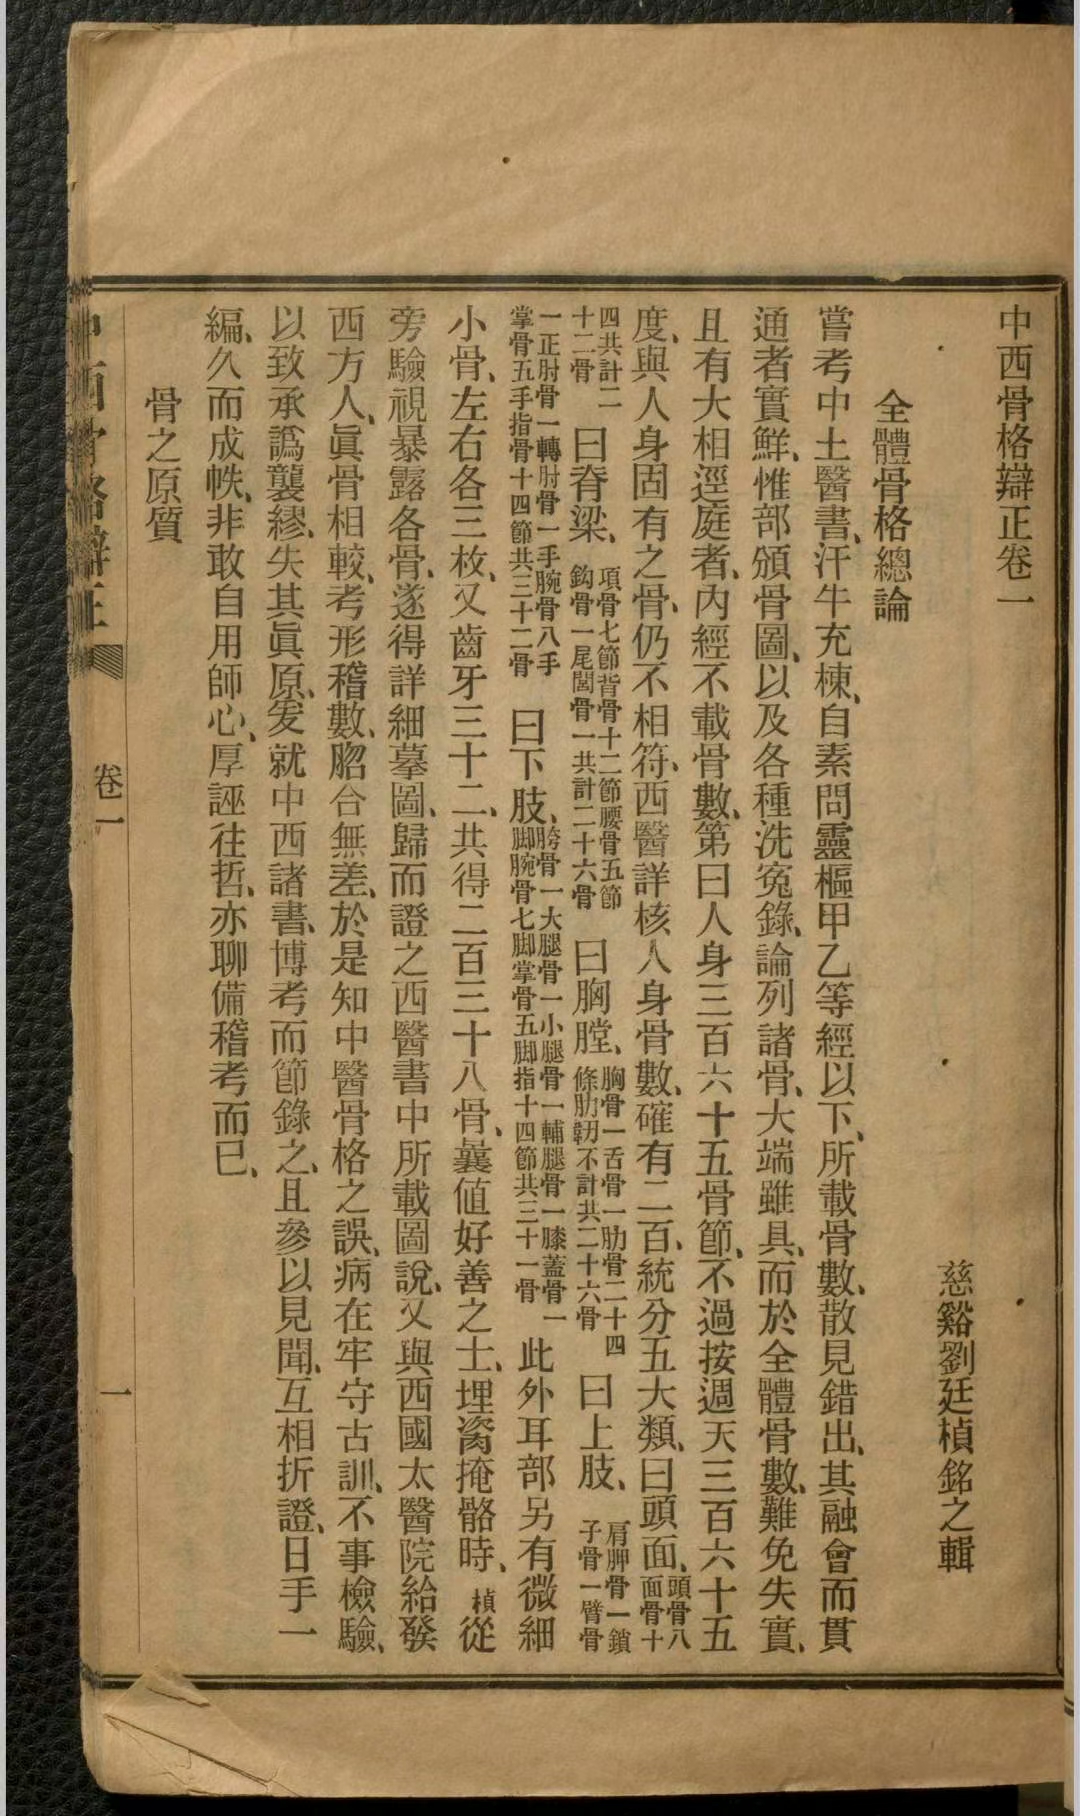 中西骨格辯正卷一
慈谿劉廷楨銘之輯
全體骨格總論
嘗考中土醫書、汗牛充棟、自素問靈樞甲乙等經以下、所載骨數、散見錯出、其融會而貫
通者實鮮、惟部頒骨圖、以及各種洗寃錄、論列諸骨、大端雖具、而於全體骨數、難免失實、
且有大相逕庭者、內經不載骨數、第曰人身三百六十五骨節、不過按週天三百六十五
度、與人身固有之骨、仍不相符、西醫詳核人身骨數、確有二百、統分五大類、曰頭面、頭骨八面骨十
四共計二十二骨 曰脊梁、項骨七節背骨十二節腰骨五節鈎骨一尾閭骨一共計二十六骨 曰胸膛、胸骨一舌骨一肋骨二十四條肋韌不計共二十六骨 曰上肢、肩胛骨一鎖子骨一臂骨
一正肘骨一轉肘骨一手腕骨八手掌骨五手指骨十四節共三十二骨 曰下肢、胯骨一大腿骨一小腿骨一輔腿骨一膝蓋骨一脚腕骨七脚掌骨五脚指十四節共三十一骨 此外耳部另有微細
小骨、左右各三枚、又齒牙三十二、共得二百三十八骨、曩値好善之士、埋胔掩骼時、楨從
旁驗視暴露各骨、遂得詳細摹圖、歸而證之西醫書中所載圖說、又與西國太醫院給發
西方人、眞骨相較、考形稽數、脗合無差、於是知中醫骨格之誤、病在牢守古訓、不事檢驗、
以致承譌襲繆、失其眞原、爰就中西諸書、博考而節錄之、且參以見聞、互相折證、日手一
編、久而成帙、非敢自用師心、厚誣往哲、亦聊備稽考而已、
骨之原質
中西骨格辯正
卷一
一